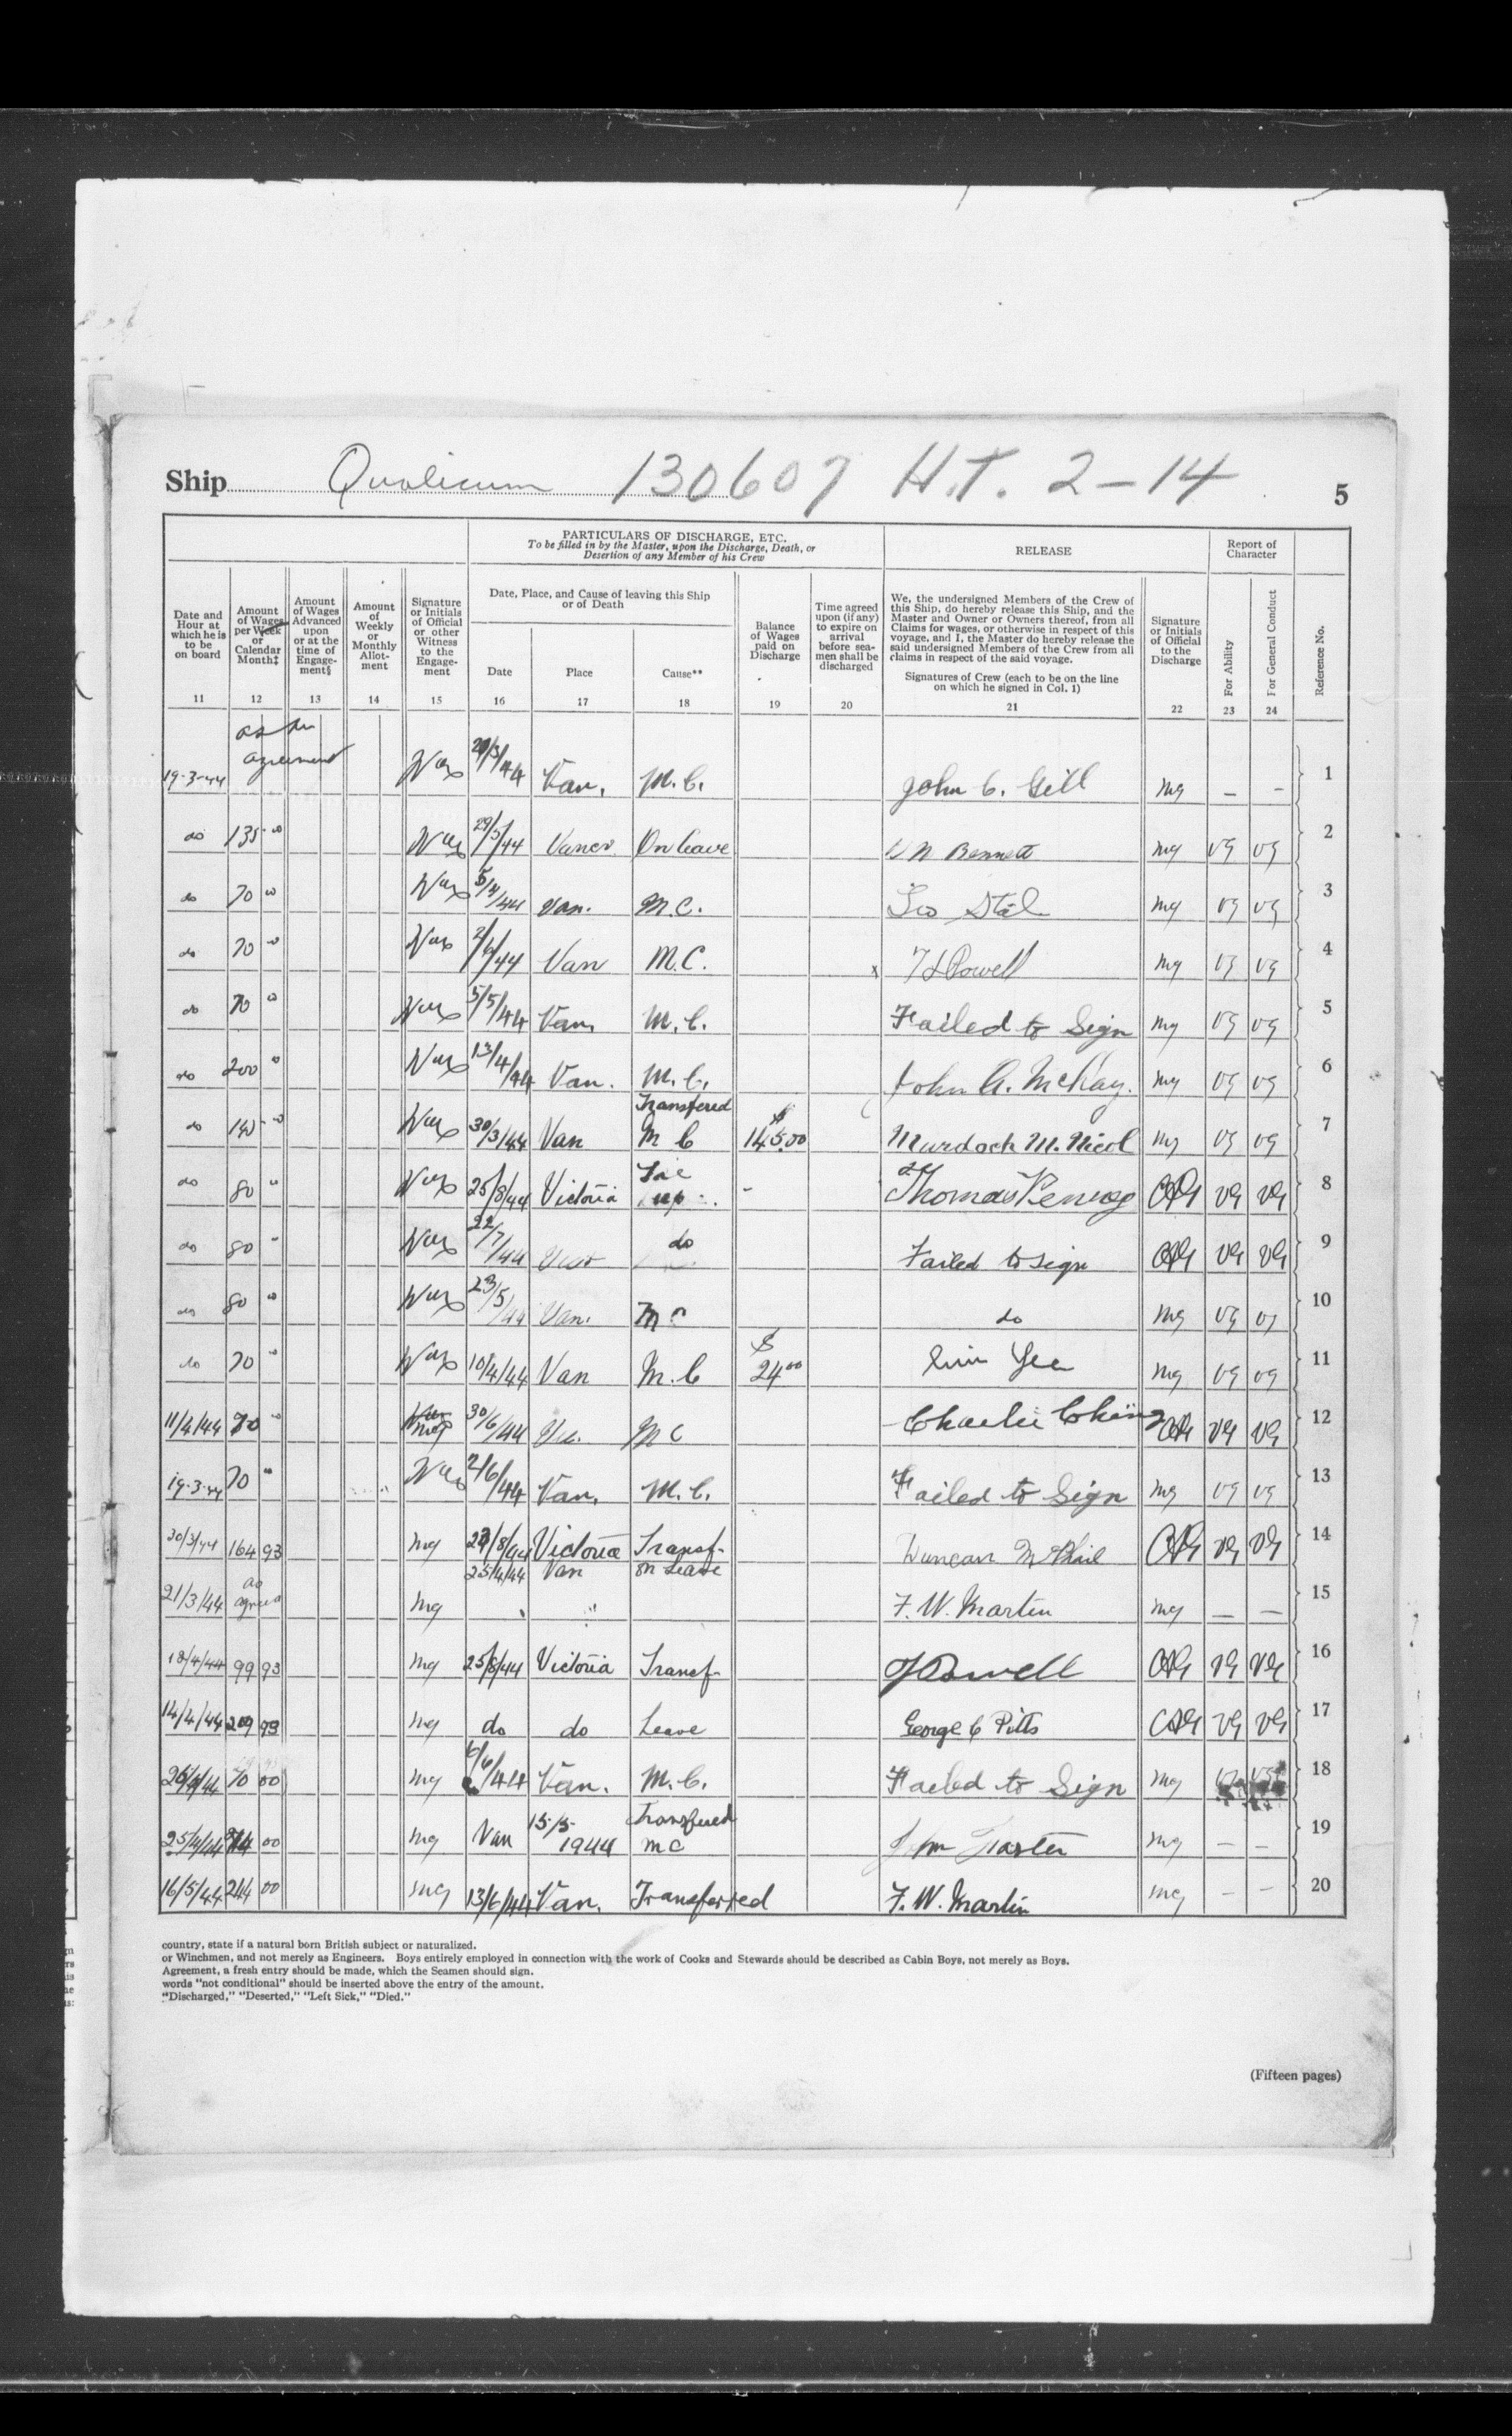 Ship Qualicum 130607 H.T. 2-14 5
PARTICULARS OF DISCHARGE, ETC.
To be filled in by the Master, upon the Discharge, Death, or
Desertion of any Member of his Crew
RELEASE
Report of
Character
Date and
Hour at
which he is
to be
on board
11
Amount
of Wages
per Week
or
Calendar
Month‡
12
Amount
of Wages
Advanced
upon
or at the
time of
Engage-
ment§
13
Amount
of
Weekly
or
Monthly
Allot-
ment
14
Signature
or Initials
of Official
or other
Witness
to the
Engage-
ment
15
Date, Place, and Cause of leaving this Ship
or of Death
Date
16
Place
17
Cause**
18
Balance
of Wages
paid on
Discharge
19
Time agreed
upon (if any)
to expire on
arrival
before sea-
men shall be
discharged
20
We, the undersigned Members of the Crew of
this Ship, do hereby release this Ship, and the
Master and Owner or Owners thereof, from all
Claims for wages, or otherwise in respect of this
voyage, and I, the Master do hereby release the
said undersigned Members of the Crew from all
claims in respect of the said voyage.
Signatures of Crew (each to be on the line
on which he signed in Col. 1)
21
Signature
or Initials
of Official
to the
Discharge
22
For Ability
23
For General Conduct
24
Reference No.
19-3-44 as per agreement /3/44 Van. M.C. John C. Gill mg — — 1
do 135 00 29/5/44 Vancr On leave W N Bennett mg VG VG 2
do 70 00 5/4/44 Van. M.C. mg VG VG 3
do 70 00 2/6/44 Van M.C. x Powell mg VG VG 4
do 70 00 5/5/44 Van. M.C. Failed to Sign mg VG VG 5
do 200 00 13/4/44 Van. M.C. John A. McKay. mg VG VG 6
do 00 30/3/44 Van Transfered M C $ 145.00 Murdoch M. Nicol mg VG VG 7
do 80 00 25/8/44 Victoria up - Thomas VG VG 8
do 80 22/7/44 do Failed to sign VG VG 9
do 80 00 23/5/44 Van. M C do mg VG VG 10
do 70 00 10/4/44 Van M.C $ 24 00 Yee mg VG VG 11
11/4/44 70 00 mg 30/6/44 M C Charlie Ching VG VG 12
19-3-44 70 2/6/44 Van. M.C. Failed to Sign mg VG VG 13
30/3/44 164 93 mg /8/44 Victoria Transf- Duncan McPhail VG VG 14
21/3/44 as agreed mg 25/4/44 Van on Leave F. W. Martin mg — — 15
18/4/44 99 93 mg 25/8/44 Victoria Transf- Powell VG VG 16
14/4/44 209 93 mg do do Leave George C Pitts VG VG 17
44 70 00 mg 6/6/44 Van. M.C. Failed to Sign mg 18
25/4/44 00 mg Van 15/5 1944 Transfered M C mg — — 19
16/5/44 244 00 mg 13/6/44 Van. Transferred F. W. Martin mg — — 20
country, state if a natural born British subject or naturalized.
or Winchmen, and not merely as Engineers. Boys entirely employed in connection with the work of Cooks and Stewards should be described as Cabin Boys, not merely as Boys.
Agreement, a fresh entry should be made, which the Seamen should sign.
words "not conditional" should be inserted above the entry of the amount.
"Discharged," "Deserted," "Left Sick," "Died."
(Fifteen pages)